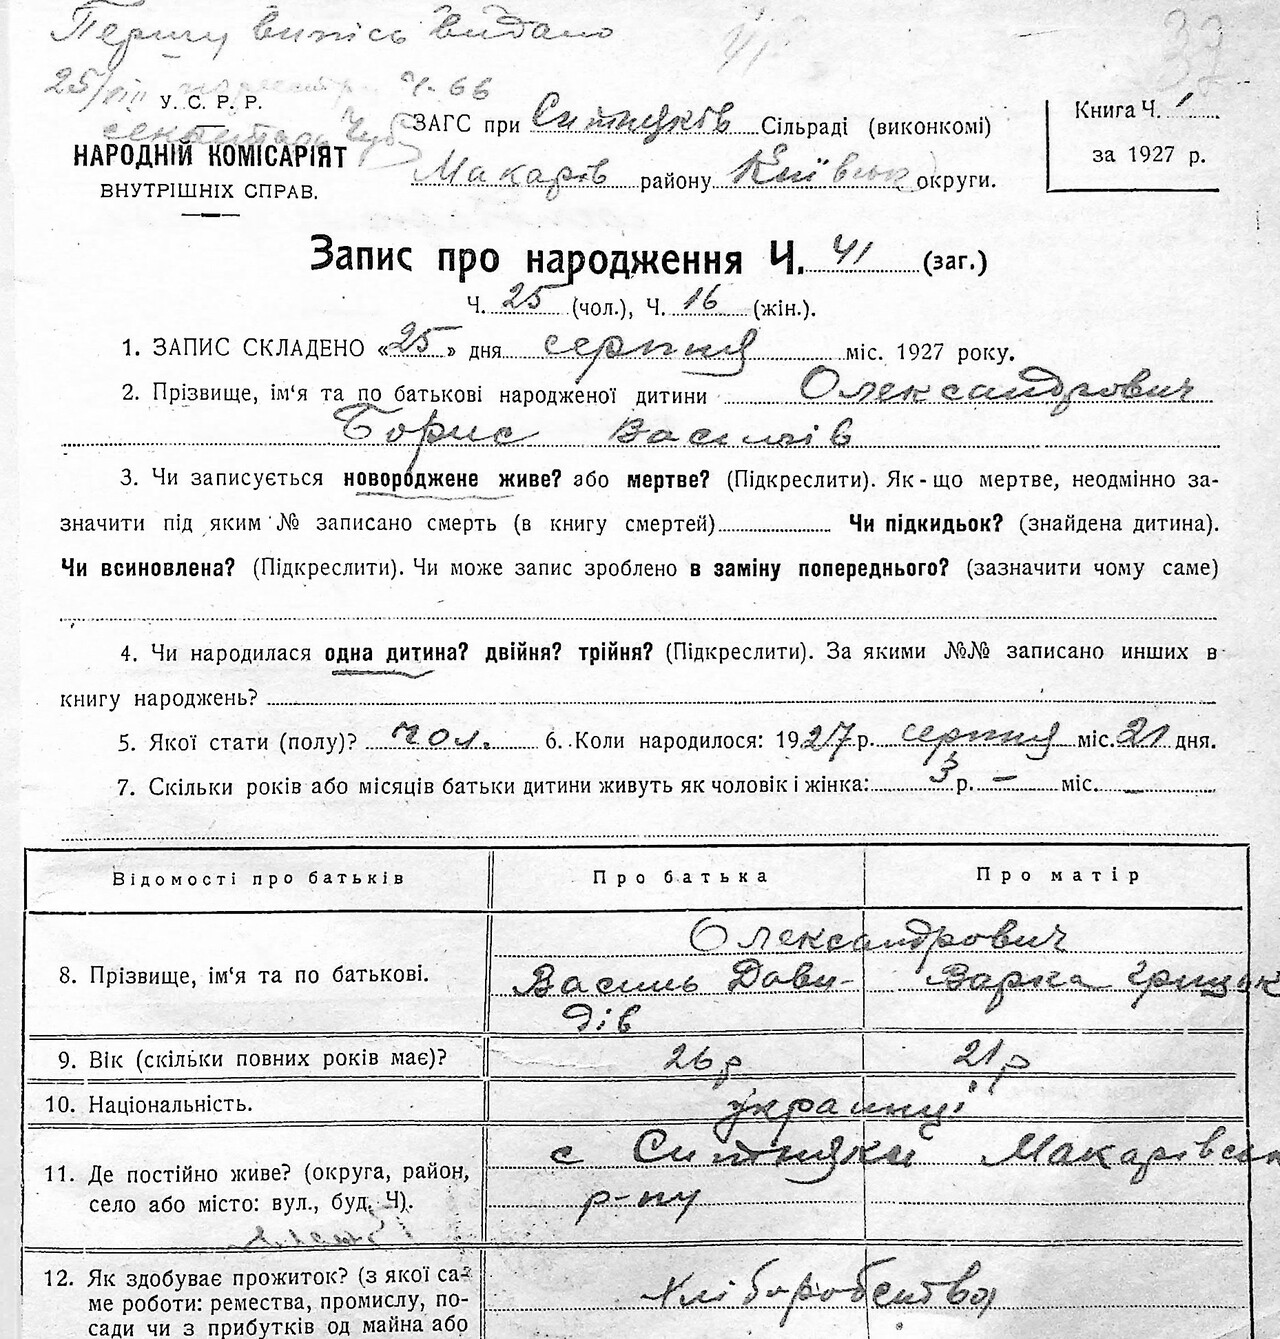 Першу випись видано
25/VIII по реєстру Ч. 66
У. С. Р. Р.
секретарь
НАРОДНІЙ КОМІСАРІЯТ
ВНУТРІШНІХ СПРАВ.
41
37
ЗАГС при Ситняків Сільраді (виконкомі)
Макарів району Київськ округи.
Книга Ч. 1
за 1927 р.
Запис про народження Ч. 41 (заг.)
Ч. 25 (чол.), Ч. 16 (жін.).
1. ЗАПИС СКЛАДЕНО «25» дня серпня міс. 1927 року.
2. Прізвище, ім‘я та по батькові народженої дитини Олександрович
Борис Василів
3. Чи записується новороджене живе? або мертве? (Підкреслити). Як-що мертве, неодмінно за-
значити під яким № записано смерть (в книгу смертей) Чи підкидьок? (знайдена дитина).
Чи всиновлена? (Підкреслити). Чи може запис зроблено в заміну попереднього? (зазначити чому саме)
4. Чи народилася одна дитина? двійня? трійня? (Підкреслити). За якими №№ записано инших в
книгу народжень?
5. Якої стати (полу)? чол. 6. Коли народилося: 1927 р. серпня міс. 21 дня.
7. Скільки років або місяців батьки дитини живуть як чоловік і жінка: 3 р. – міс.
Відомості про батьків Про батька Про матір
Олександрович
8. Прізвище, ім‘я та по батькові. Василь Дави- Варка Грицьк
дів
9. Вік (скільки повних років має)? 26 р 21 р
10. Національність. українці
11. Де постійно живе? (округа, район, с Ситняки Макарівськ
село або місто: вул., буд. Ч). р-ну
12. Як здобуває прожиток? (з якої са- Хліборобства
ме роботи: ремества, промислу, по-
сади чи з прибутків од майна або